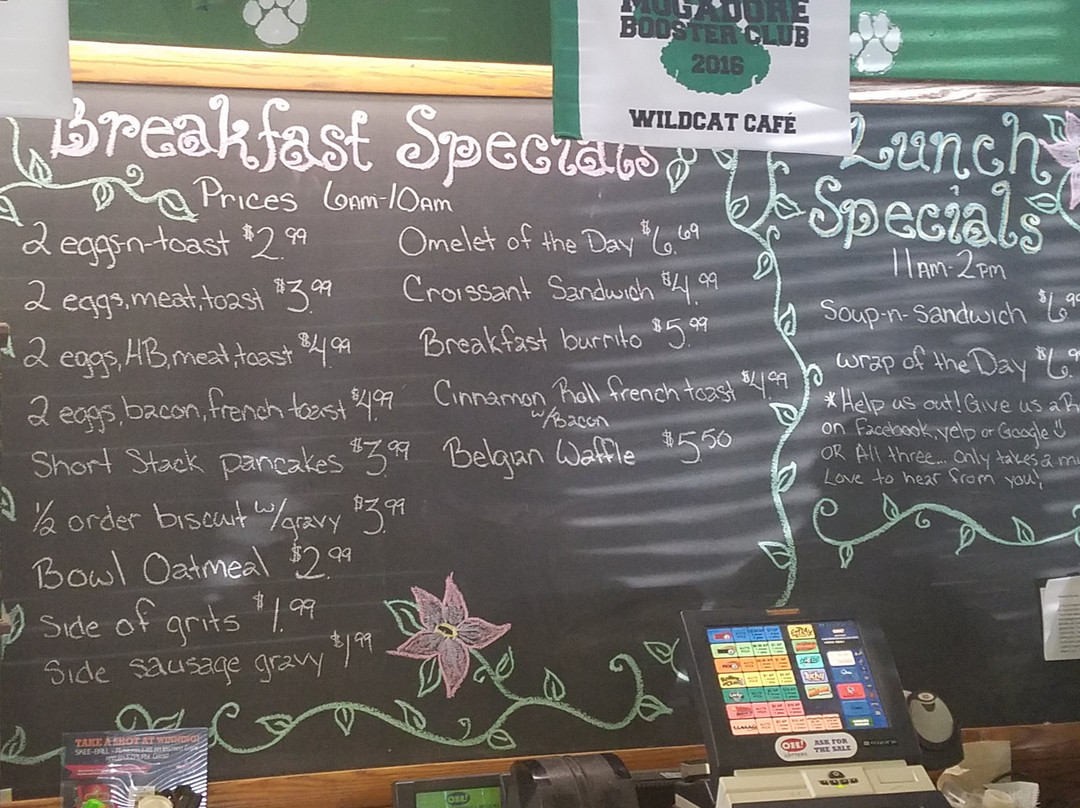 MOGADORE
BOOSTER CLUB
2016
WILDCAT CAFÉ
Breakfast Specials
Prices 6AM-10AM
2 eggs-n-toast $2.99
2 eggs, meat, toast $3.99
2 eggs, HB, meat, toast $4.99
2 eggs, bacon, french toast $4.99
Short Stack pancakes $3.99
1/2 order biscuit w/gravy $3.99
Bowl Oatmeal $2.99
Side of grits $1.99
Side sausage gravy $1.99
Omelet of the Day $6.69
Croissant Sandwich $4.99
Breakfast burrito $5.99
Cinnamon Roll french toast $4.99
w/Bacon
Belgian Waffle $5.50
Lunch
Specials
11AM-2PM
Soup-n-Sandwich $6.99
wrap of the Day $6.9
*Help us out! Give us a
on Facebook, yelp or Google
OR All three... only takes a
Love to hear from you!
TAKE A SHOT AT WINNING!
OH!
LOTTERY
ASK FOR
THE SALE
OH!